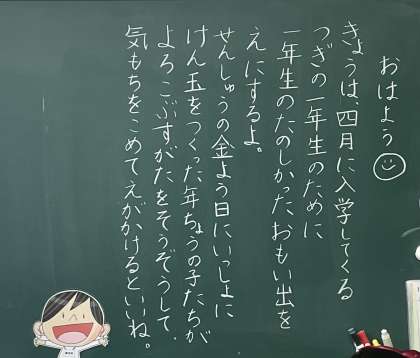 おはよう
きょうは、四月に入学してくる
つぎの一年生のために
一年生のたのしかったおもい出を
えにするよ。
せんしゅうの金よう日にいっしょに
けん玉をつくった年ちょうの子たちが
よろこぶすがたをそうぞうして、
気もちをこめてえがかけるといいね。